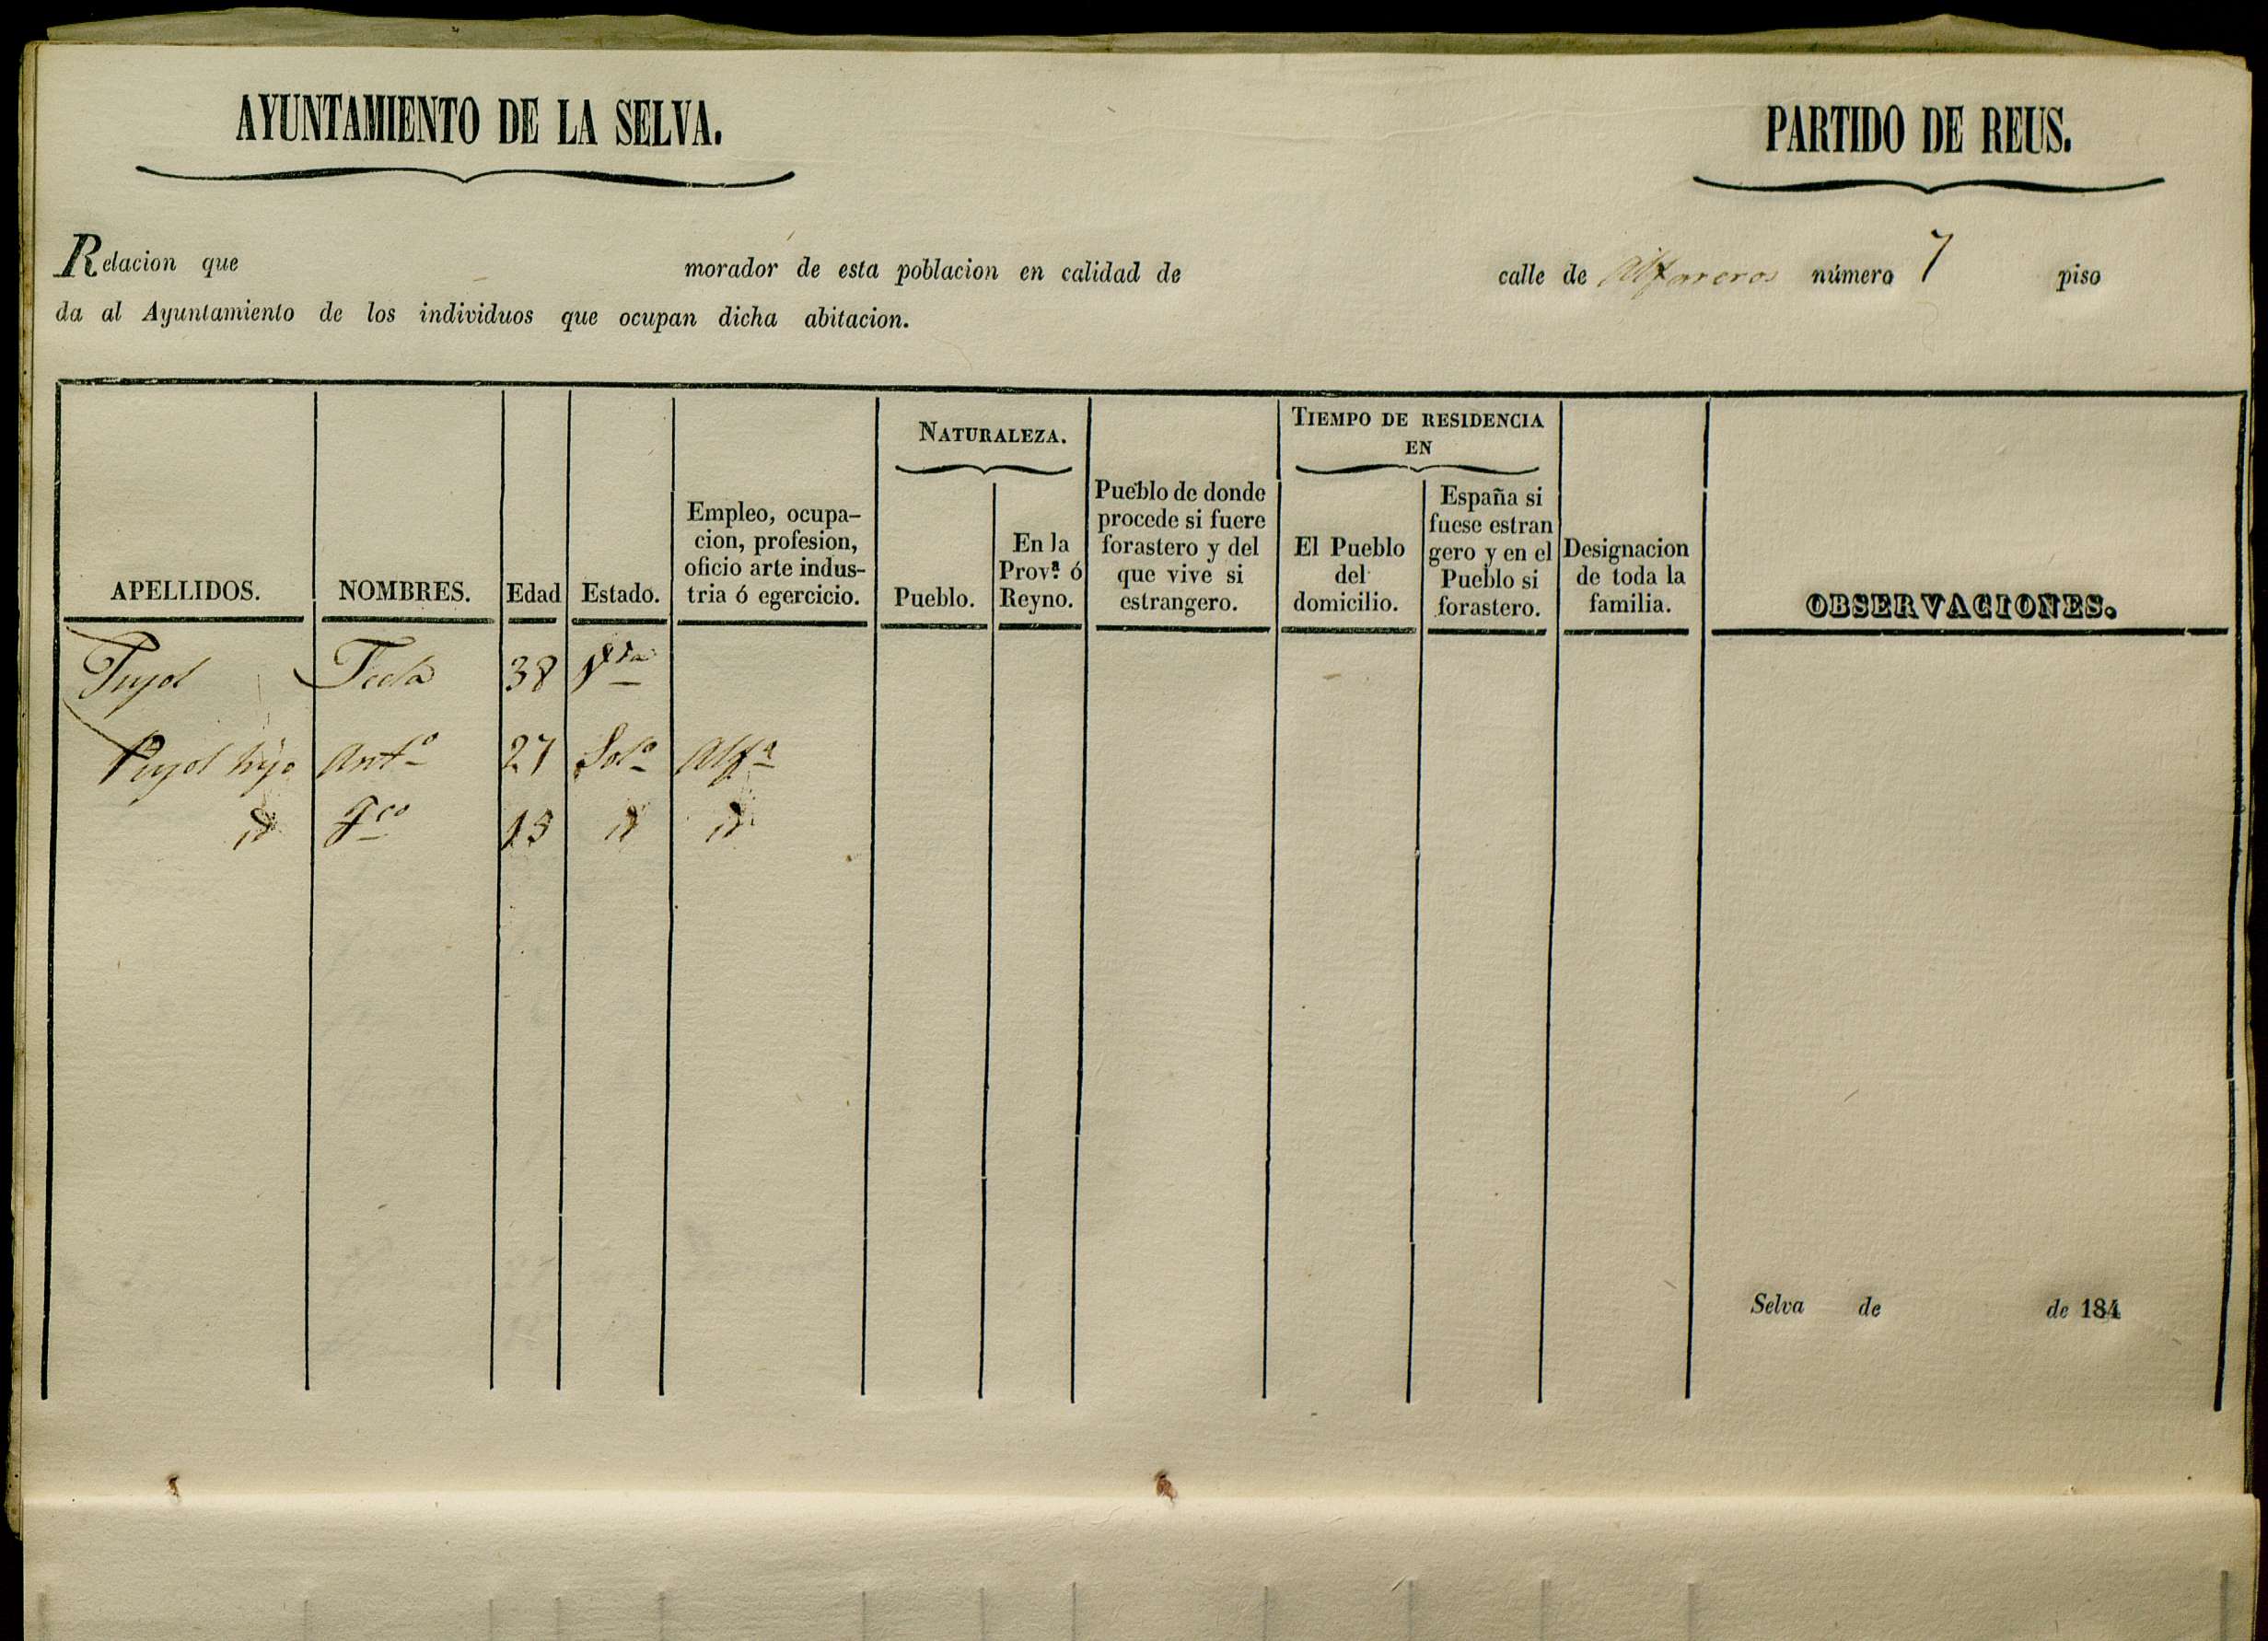 AYUNTAMIENTO DE LA SELVA.
PARTIDO DE REUS.
Relacion que morador de esta poblacion en calidad de calle de Alfareros número 7 piso
da al Ayuntamiento de los individuos que ocupan dicha abitacion.
NATURALEZA.
TIEMPO DE RESIDENCIA
EN
APELLIDOS.
NOMBRES.
Edad
Estado.
Empleo, ocupa-
cion, profesion,
oficio arte indus-
tria ó egercicio.
Pueblo.
En la
Prov.ª ó
Reyno.
Pueblo de donde
procede si fuere
forastero y del
que vive si
estrangero.
El Pueblo
del
domicilio.
España si
fuese estran
gero y en el
Pueblo si
forastero.
Designacion
de toda la
familia.
OBSERVACIONES.
Pujol Tecla 38 Vda
Pujol hijo Antº 27 Solº Alfº
id Fco 15 id id
Selva de de 184